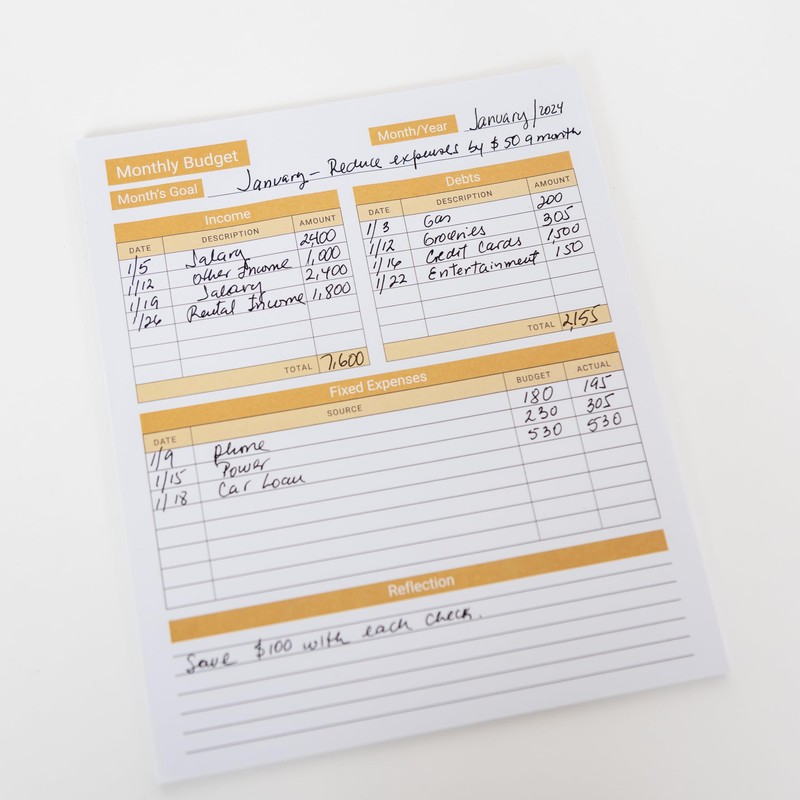 Month/Year January/2024
Monthly Budget
Month's Goal January - Reduce expenses by $50 a month
Income
DATE DESCRIPTION AMOUNT
1/5 Salary 2400
1/12 Other Income 1,000
1/19 Salary 2,400
1/26 Rental Income 1,800
TOTAL 7,600
Debts
DATE DESCRIPTION AMOUNT
1/3 Gas 200
1/12 Groceries 305
1/16 Credit Cards 1,500
1/22 Entertainment 150
TOTAL 2,155
Fixed Expenses
DATE SOURCE BUDGET ACTUAL
1/9 phone 180 195
1/15 Power 230 305
1/18 Car Loan 530 530
Reflection
Save $100 with each check.